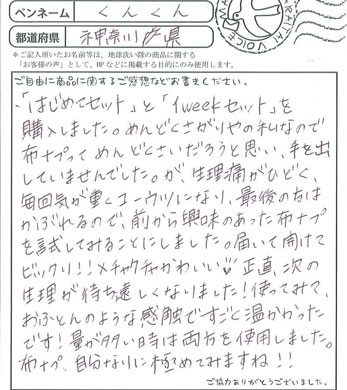 ペンネーム くんくん
都道府県 神奈川県
＊ご記入頂いたお名前等は、地球洗い隊の商品に関する
「お客様の声」として、HPなどに掲載する目的にのみ使用します。
ご自由に商品に関するご感想などお書きください。
「はじめてセット」と「1weekセット」を
購入しました。めんどくさがりやの私なので
布ナプってめんどくさいだろうと思い、手を出
していませんでした。が、生理痛がひどく、
毎回気が重くユーウツになり、最後の方は
かぶれるので、前から興味のあった布ナプ
を試してみることにしました。届いて開けて
ビックリ!!メチャクチャかわいい♡ 正直、次の
生理が待ち遠しくなりました!使ってみて、
おふとんのような感触ですごく温かかった
です!量が多い時は両方を使用しました。
布ナプ、自分なりに極めてみますね!!
ご協力ありがとうございました。